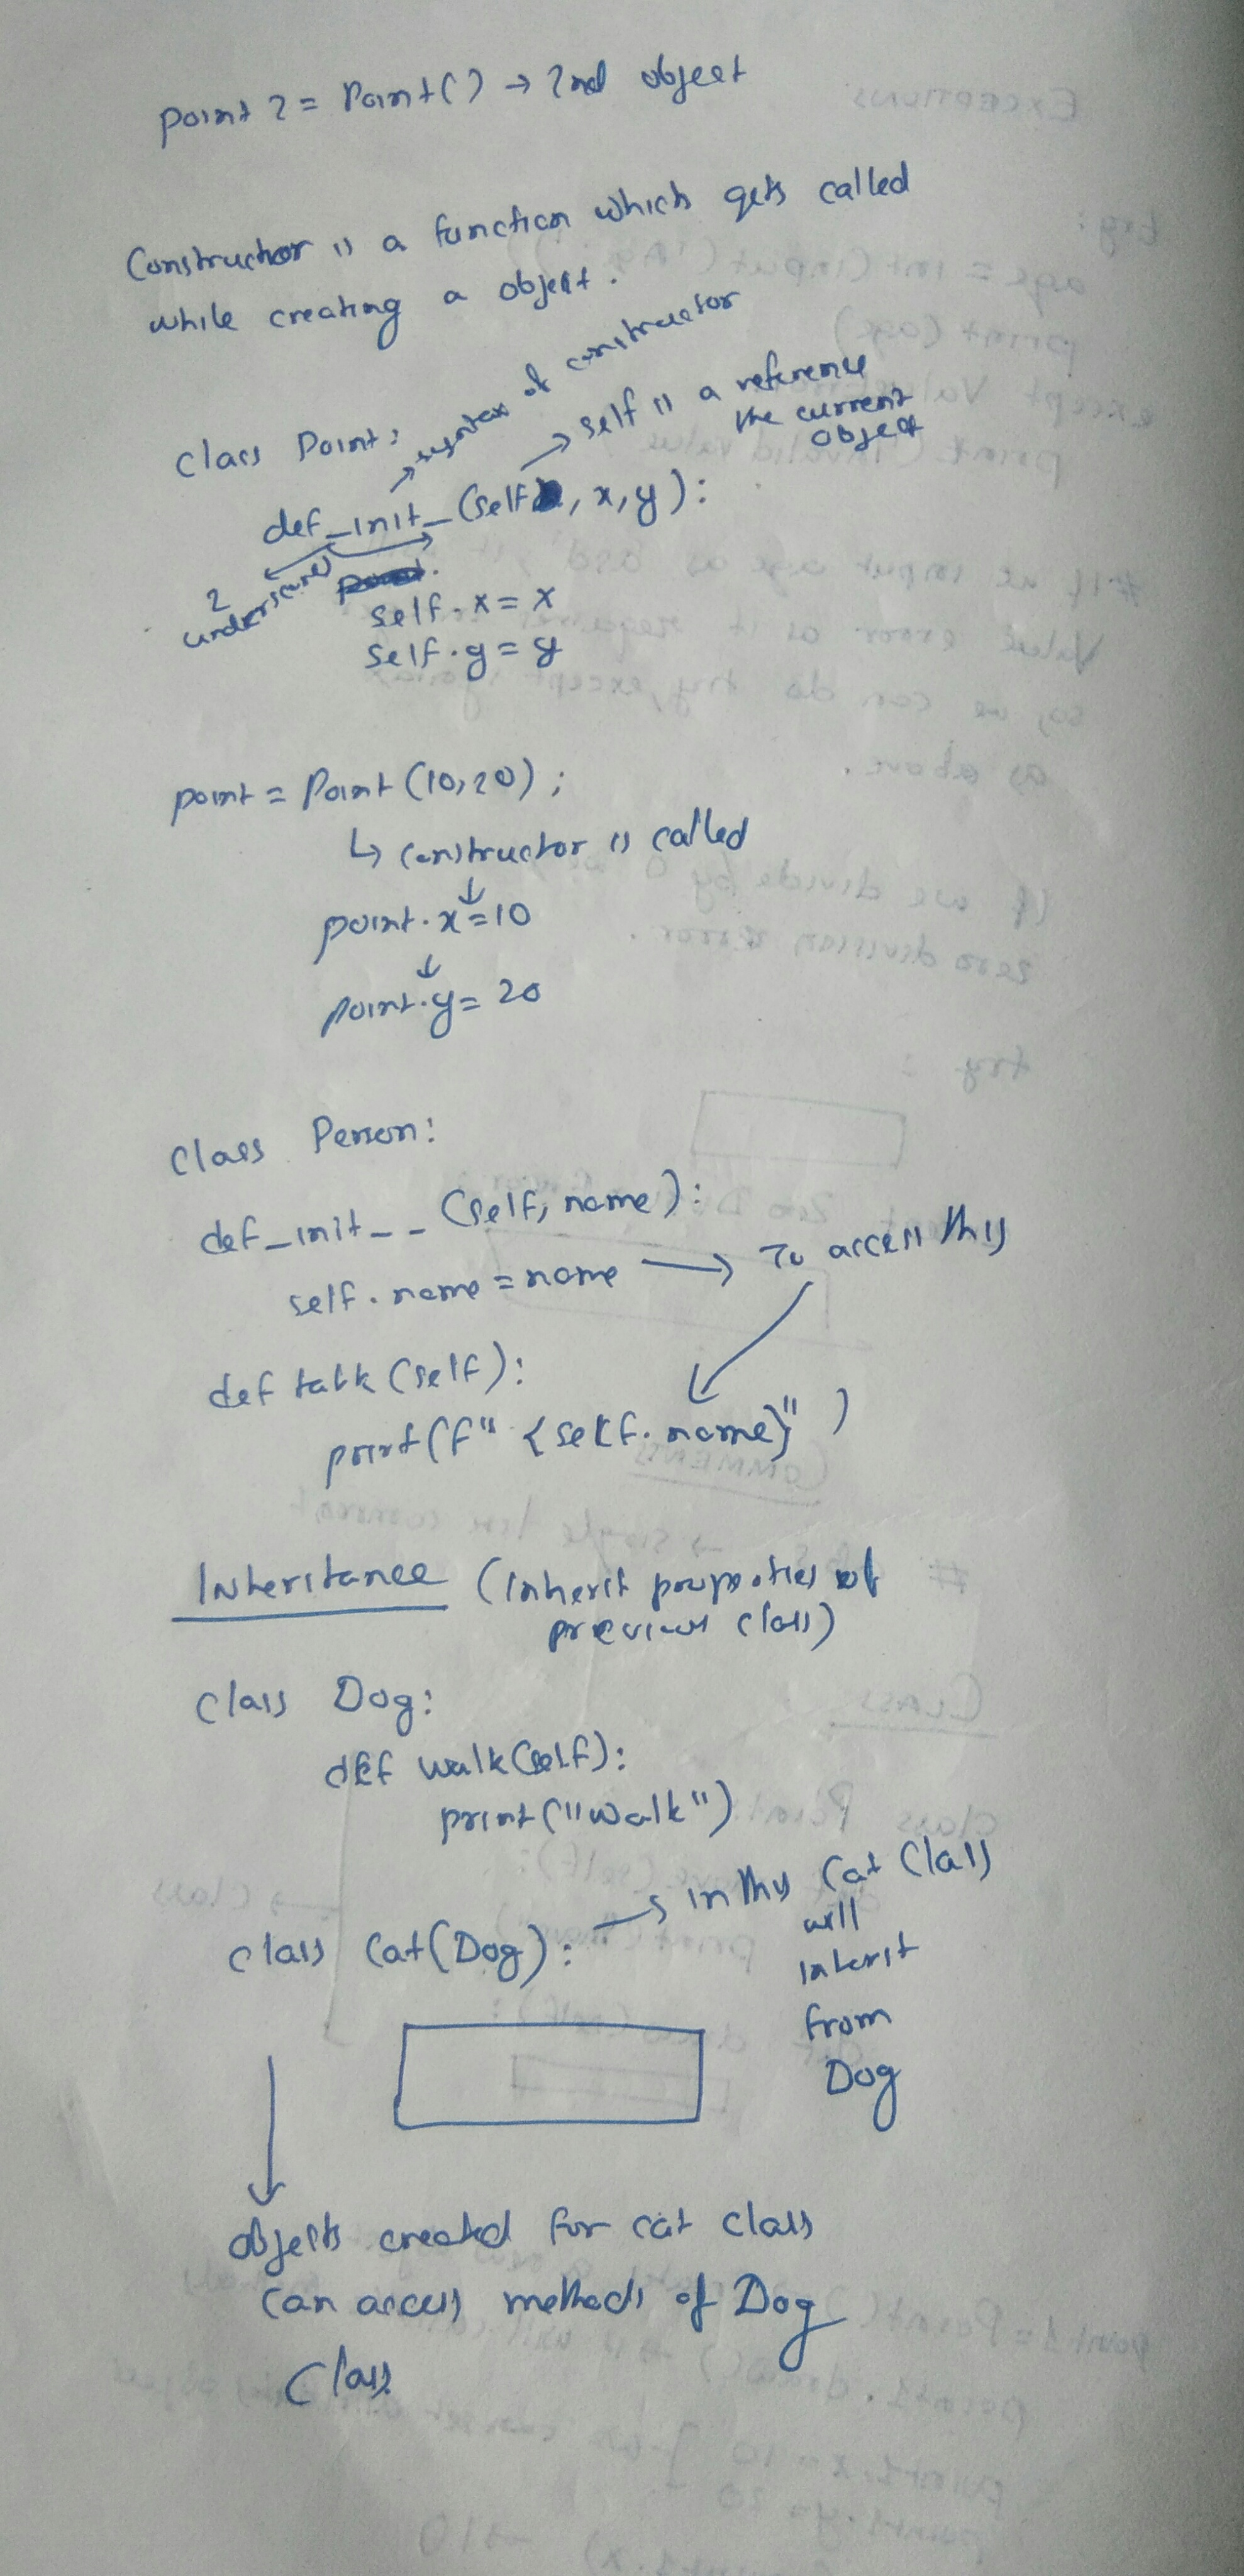 point 2 = Point() → 2nd object
Constructor is a function which gets called
while creating a object.
→ syntax of constructor
→ self is a reference
the current
object
class Point:
def _init_ (self, x, y):
2
underscores
self.x = x
self.y = y
point = Point (10,20) ;
↳ constructor is called
↓
point.x = 10
↓
point.y = 20
class Person:
def _init_ _ (self, name):
self.name = name → To access this
def talk (self):
print(f" {self.name}" )
Inheritance (Inherit properties of
previous class)
class Dog:
def walk(self):
print("walk")
class Cat(Dog): → in this Cat Class
will
inherit
from
Dog
objects created for cat class
can access methods of Dog
Class